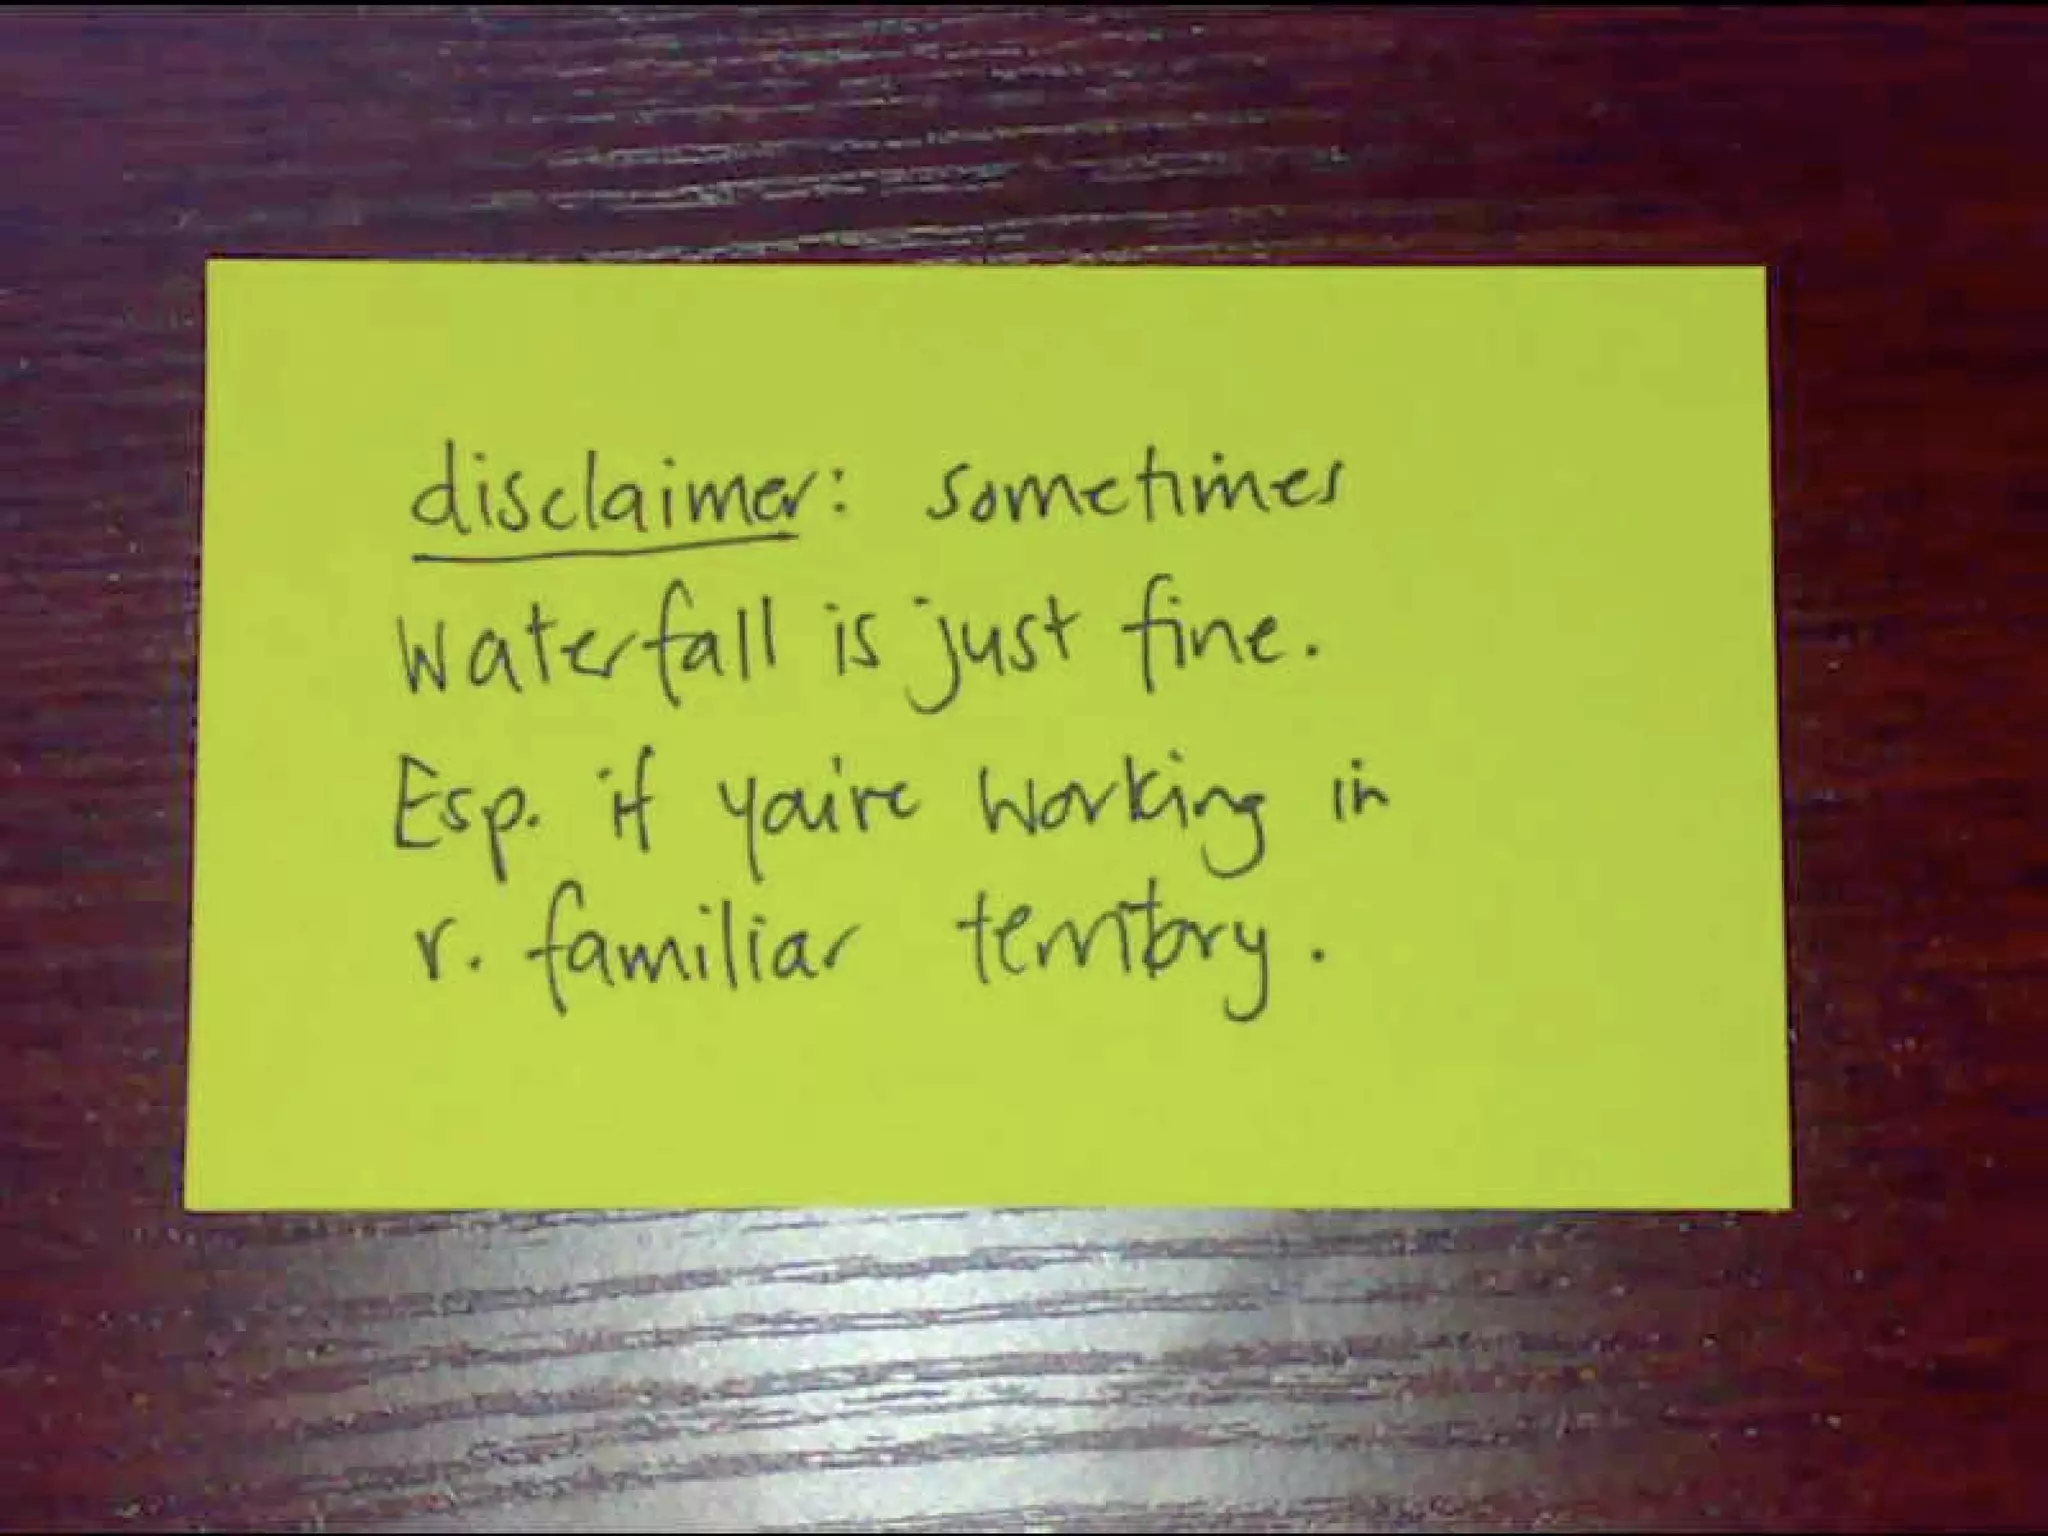 disclaimer: sometimes
waterfall is just fine.
Esp. if you're working in
r. familiar territory.